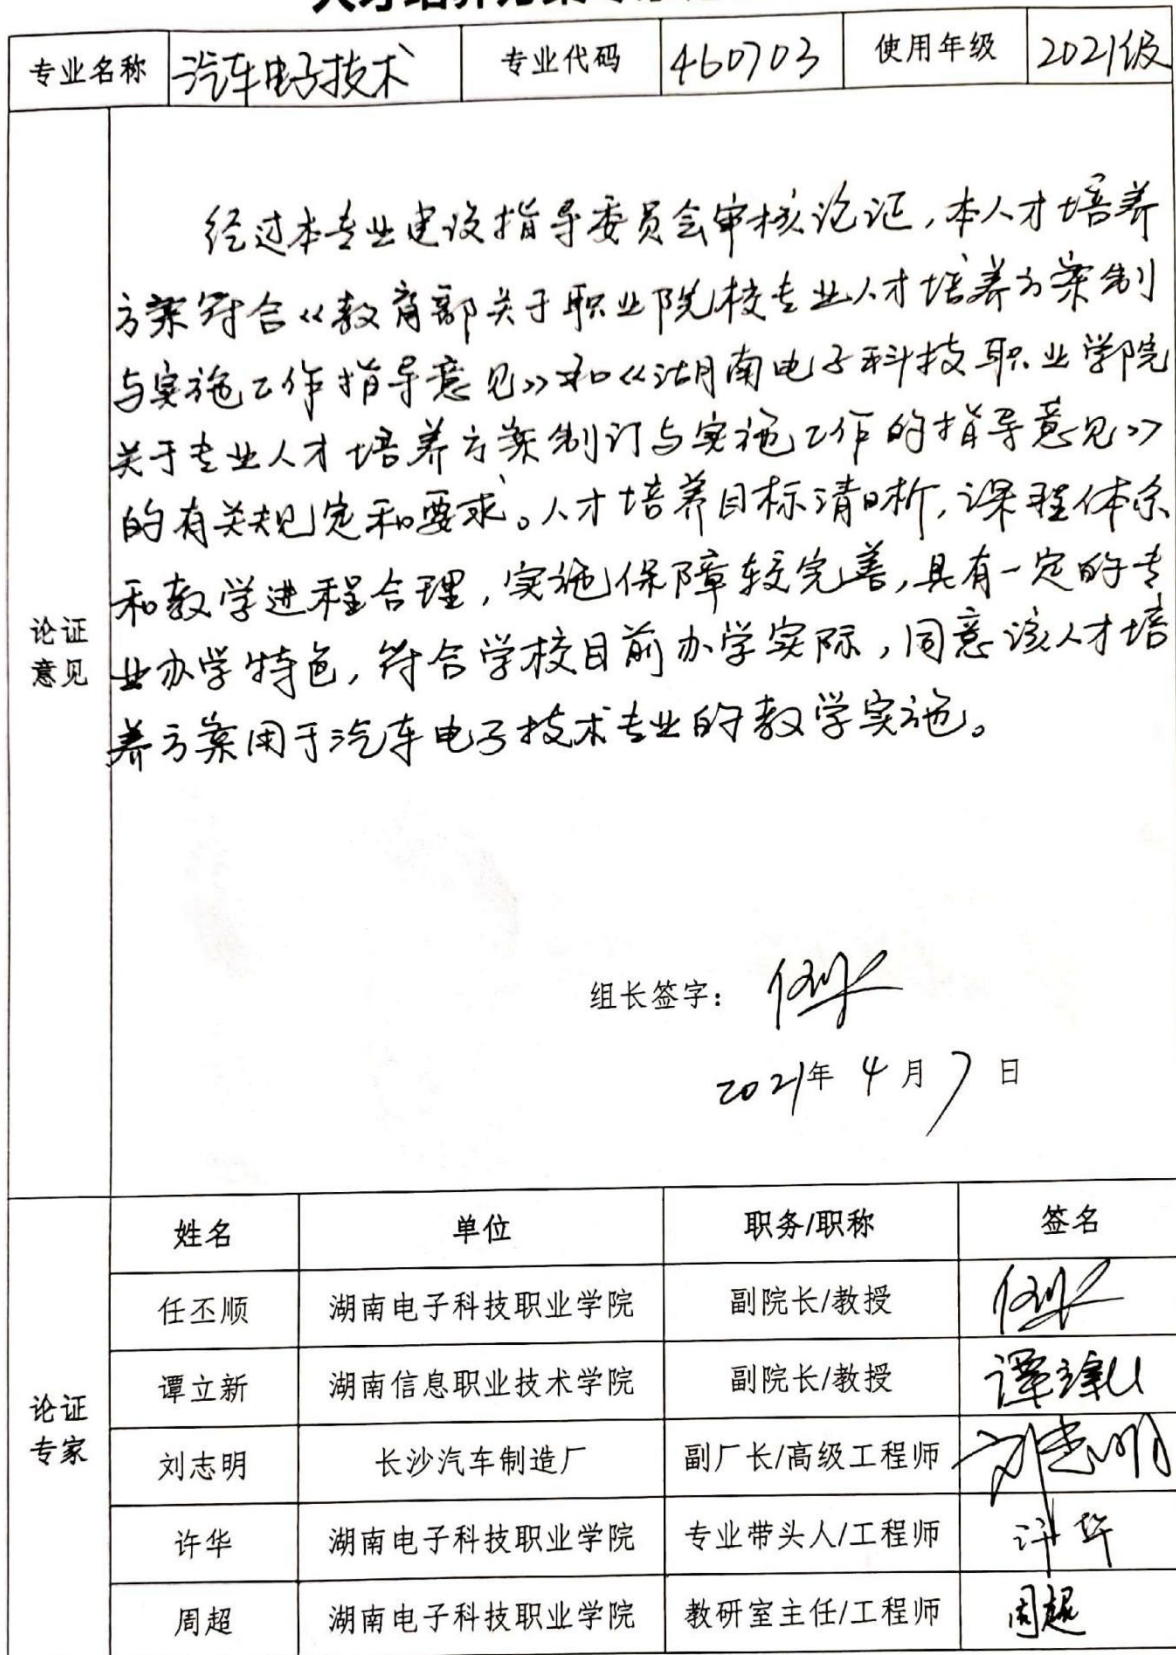 专业名称 汽车电子技术 专业代码 460703 使用年级 2021级
经过本专业建设指导委员会审核论证,本人才培养
方案符合《教育部关于职业院校专业人才培养方案制
与实施工作指导意见》和《湖南电子科技职业学院
关于专业人才培养方案制订与实施工作的指导意见》
的有关规定和要求。人才培养目标清晰,课程体系
和教学进程合理,实施保障较完善,具有一定的专
业办学特色,符合学校目前办学实际,同意该人才培
养方案用于汽车电子技术专业的教学实施。
论证
意见
组长签字:
2021年 4月7日
姓名 单位 职务/职称 签名
任丕顺 湖南电子科技职业学院 副院长/教授
谭立新 湖南信息职业技术学院 副院长/教授 谭立新
论证
专家
刘志明 长沙汽车制造厂 副厂长/高级工程师 刘志明
许华 湖南电子科技职业学院 专业带头人/工程师 许华
周超 湖南电子科技职业学院 教研室主任/工程师 周超